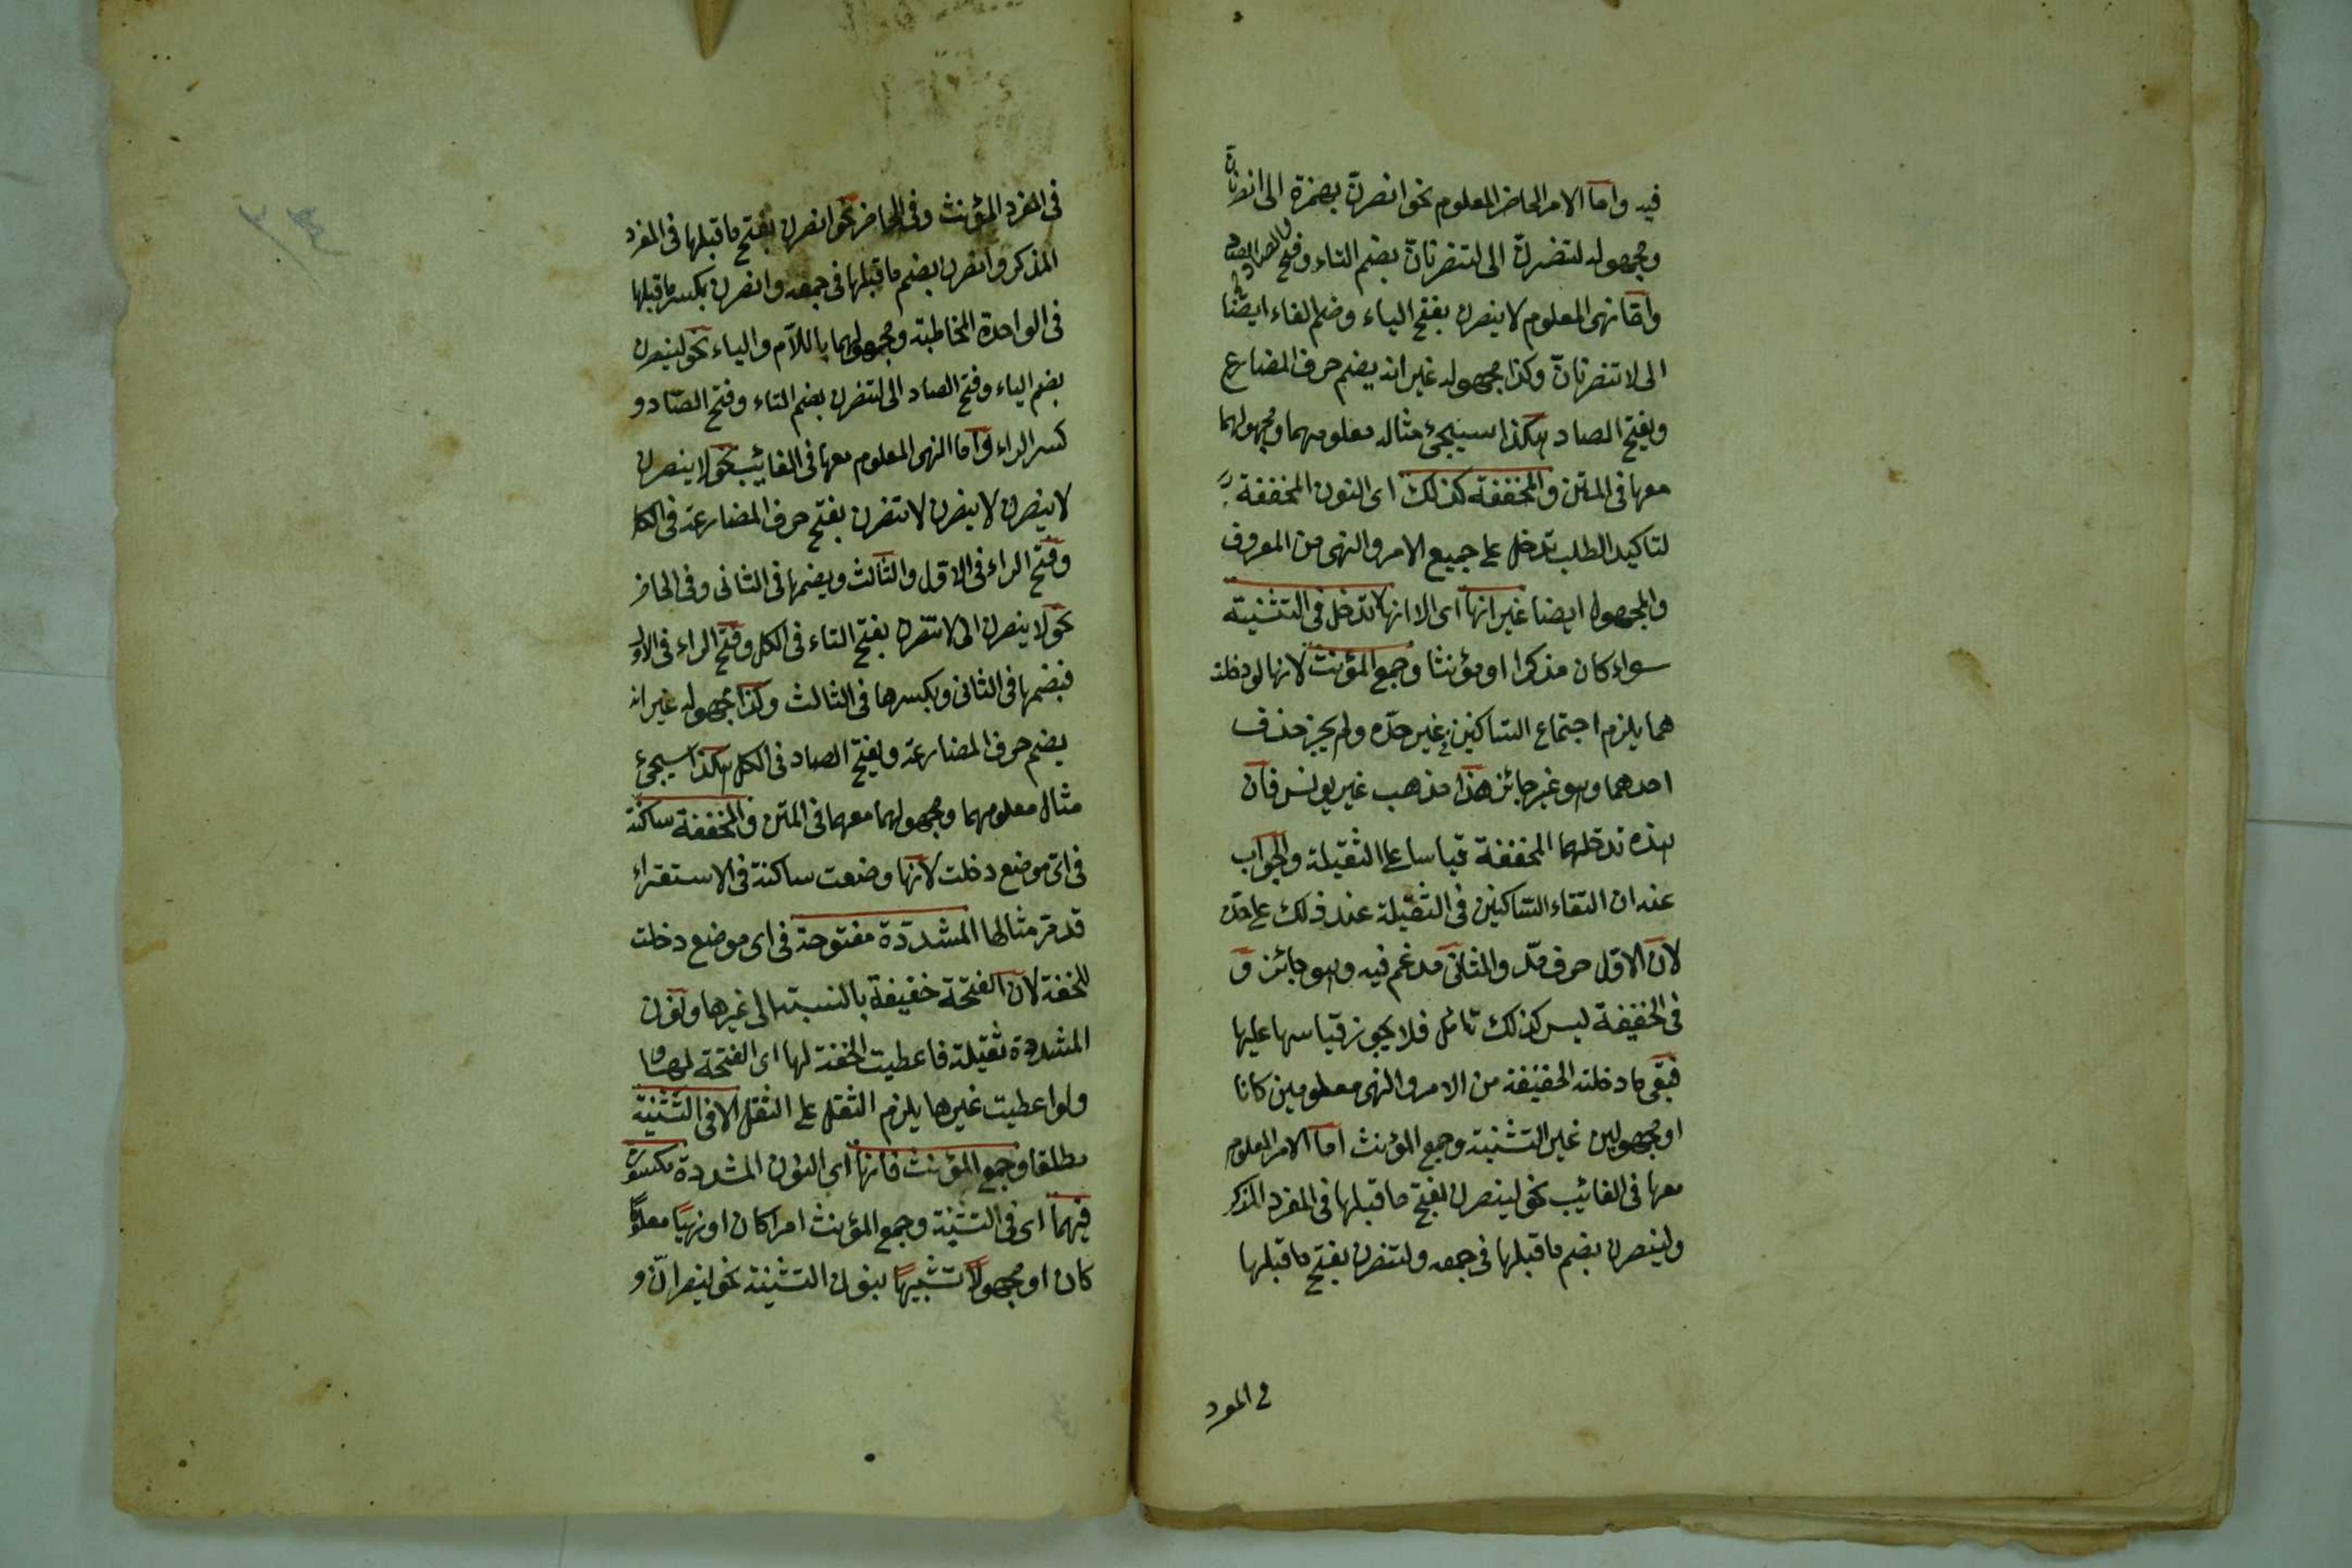 فيه واما الامر الحاضر المعلوم نحو انصرنّ بهمزة الى انصرنانّ
ومجهوله لتنصرنّ الى لتنصرنانّ بضم التاء وفتح الصاد
وامّا نهى المعلوم لا ينصرن بفتح الياء وضم الفاء ايضًا
الى لا تنصرنانّ وكذا مجهوله غير انه يضم حرف المضارع
ويفتح الصاد هكذا سيجئ مثاله معلومهما ومجهولهما
معها فى المتن والمخففة كذلك اى النون المخففة
لتاكيد الطلب تدخل على جميع الامر والنهى من المعروف
والمجهول ايضا غير انها اى الا انها لا تدخل فى التثنية
سواء كان مذكرا او مؤنثا وجمع المؤنث لانها لو دخلت
هما يلزم اجتماع الساكنين فى غير حدّه ولم يجز حذف
احدهما وهو غير جائز هذا مذهب غير يونس فان
هذه تدخلهما المخففة قياسا على الثقيلة والجواب
عنه ان التقاء الساكنين فى الثقيلة عند ذلك على حدّه
لان الاوّل حرف مدّ والثانى مدغم فيه وهو جائز و
فى الخفيفة ليس كذلك تامّل فلا يجوز قياسها عليها
فبقى ما دخلته الخفيفة من الامر والنهى معلومين كانا
او مجهولين غير التثنية وجمع المؤنث اما الامر المعلوم
معها فى الغائب نحو لينصرن بفتح ما قبلها فى المفرد المذكر
ولينصرن بضم ما قبلها فى جمعه ولتنصرن بفتح ما قبلها
فى المفرد
فى المفرد المؤنث وفى الحاضر نحو انصرن بفتح ما قبلها فى المفرد
المذكر وانصرن بضم ما قبلها فى جمعه وانصرن بكسر ما قبلها
فى الواحدة المخاطبة ومجهولهما باللّام والياء نحو لينصرن
بضم الياء وفتح الصاد الى لتنصرن بضم التاء وفتح الصّاد و
كسر الراء وامّا النهى المعلوم معها فى الغائب نحو لا ينصرن
لا ينصرن لا ينصرن لا تنصرن بفتح حرف المضارعة فى الكل
وفتح الراء فى الاوّل والثالث ويضمها فى الثانى وفى الحاضر
نحو لا ينصرن الى لا تنصرن بفتح التاء فى الكل وفتح الراء فى الاول
فبضمها فى الثانى وبكسرها فى الثالث وكذا مجهوله غير انه
يضم حرف المضارعة ويفتح الصاد فى الكل هكذا سيجئ
مثال معلومهما ومجهولهما معهما فى المتن والمخففة ساكنة
فى اىّ موضع دخلت لانها وضعت ساكنة فى الاستقراء
قد مرّ مثالها المشدّدة مفتوحة فى اى موضع دخلت
للخفة لان الفتحة خفيفة بالنسبة الى غيرها ونون
المشددة ثقيلة فاعطيت الخفة لها اى الفتحة لها
ولو اعطيت غيرها يلزم الثقل على الثقل الا فى التثنية
مطلقا وجمع المؤنث فانها اى النون المشددة مكسورة
فيهما اى فى التثنية وجمع المؤنث امرا كان او نهيًا معلومًا
كان او مجهولًا تشبيهًا بنون التثنية نحو لينصرانّ و